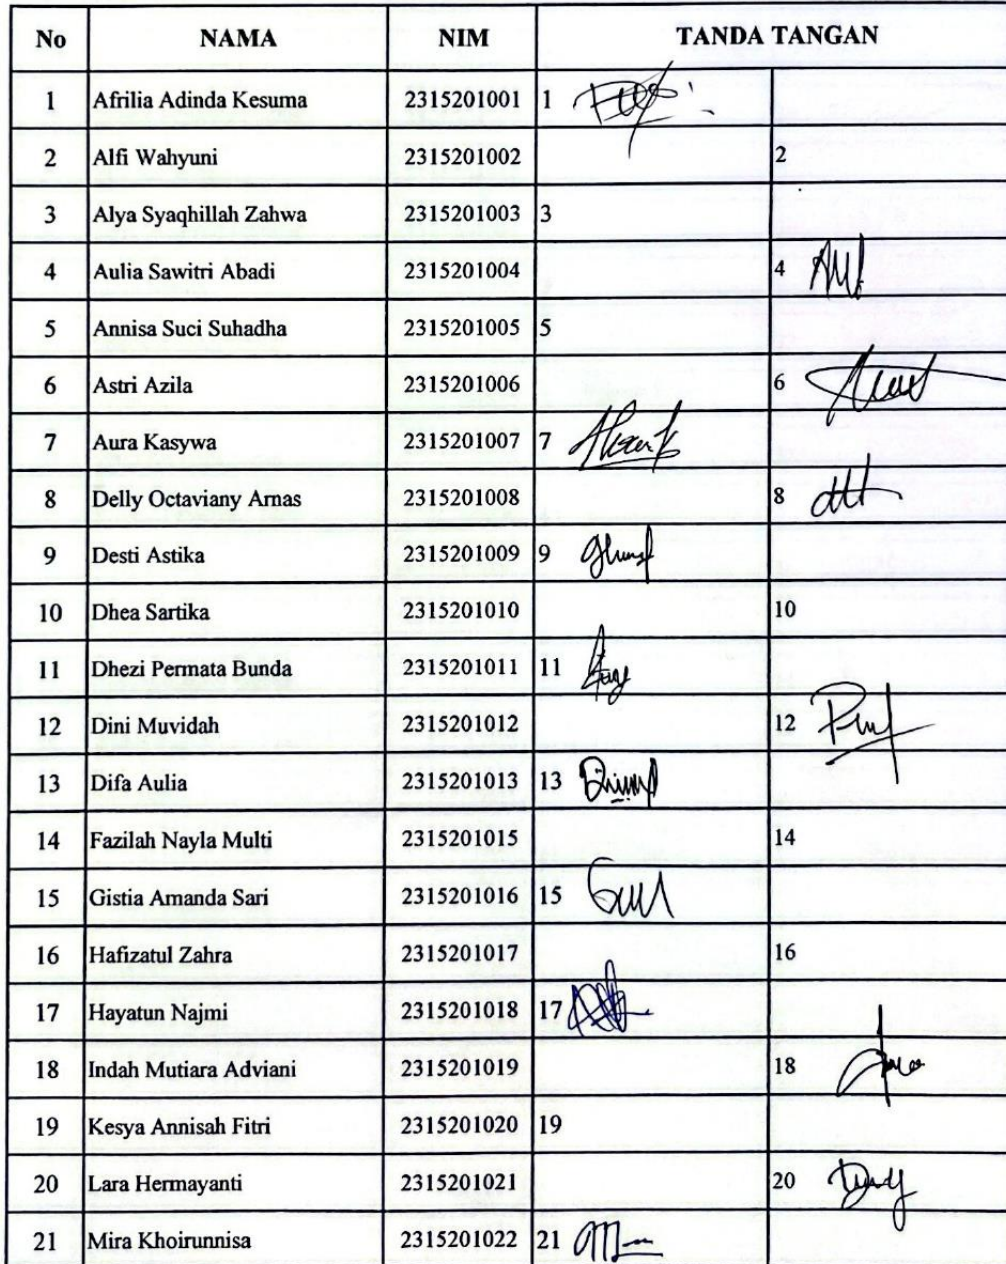 No NAMA NIM TANDA TANGAN
1 Afrilia Adinda Kesuma 2315201001 1
2 Alfi Wahyuni 2315201002 2
3 Alya Syaqhillah Zahwa 2315201003 3
4 Aulia Sawitri Abadi 2315201004 4
5 Annisa Suci Suhadha 2315201005 5
6 Astri Azila 2315201006 6
7 Aura Kasywa 2315201007 7
8 Delly Octaviany Arnas 2315201008 8
9 Desti Astika 2315201009 9
10 Dhea Sartika 2315201010 10
11 Dhezi Permata Bunda 2315201011 11
12 Dini Muvidah 2315201012 12
13 Difa Aulia 2315201013 13
14 Fazilah Nayla Multi 2315201015 14
15 Gistia Amanda Sari 2315201016 15
16 Hafizatul Zahra 2315201017 16
17 Hayatun Najmi 2315201018 17
18 Indah Mutiara Adviani 2315201019 18
19 Kesya Annisah Fitri 2315201020 19
20 Lara Hermayanti 2315201021 20
21 Mira Khoirunnisa 2315201022 21